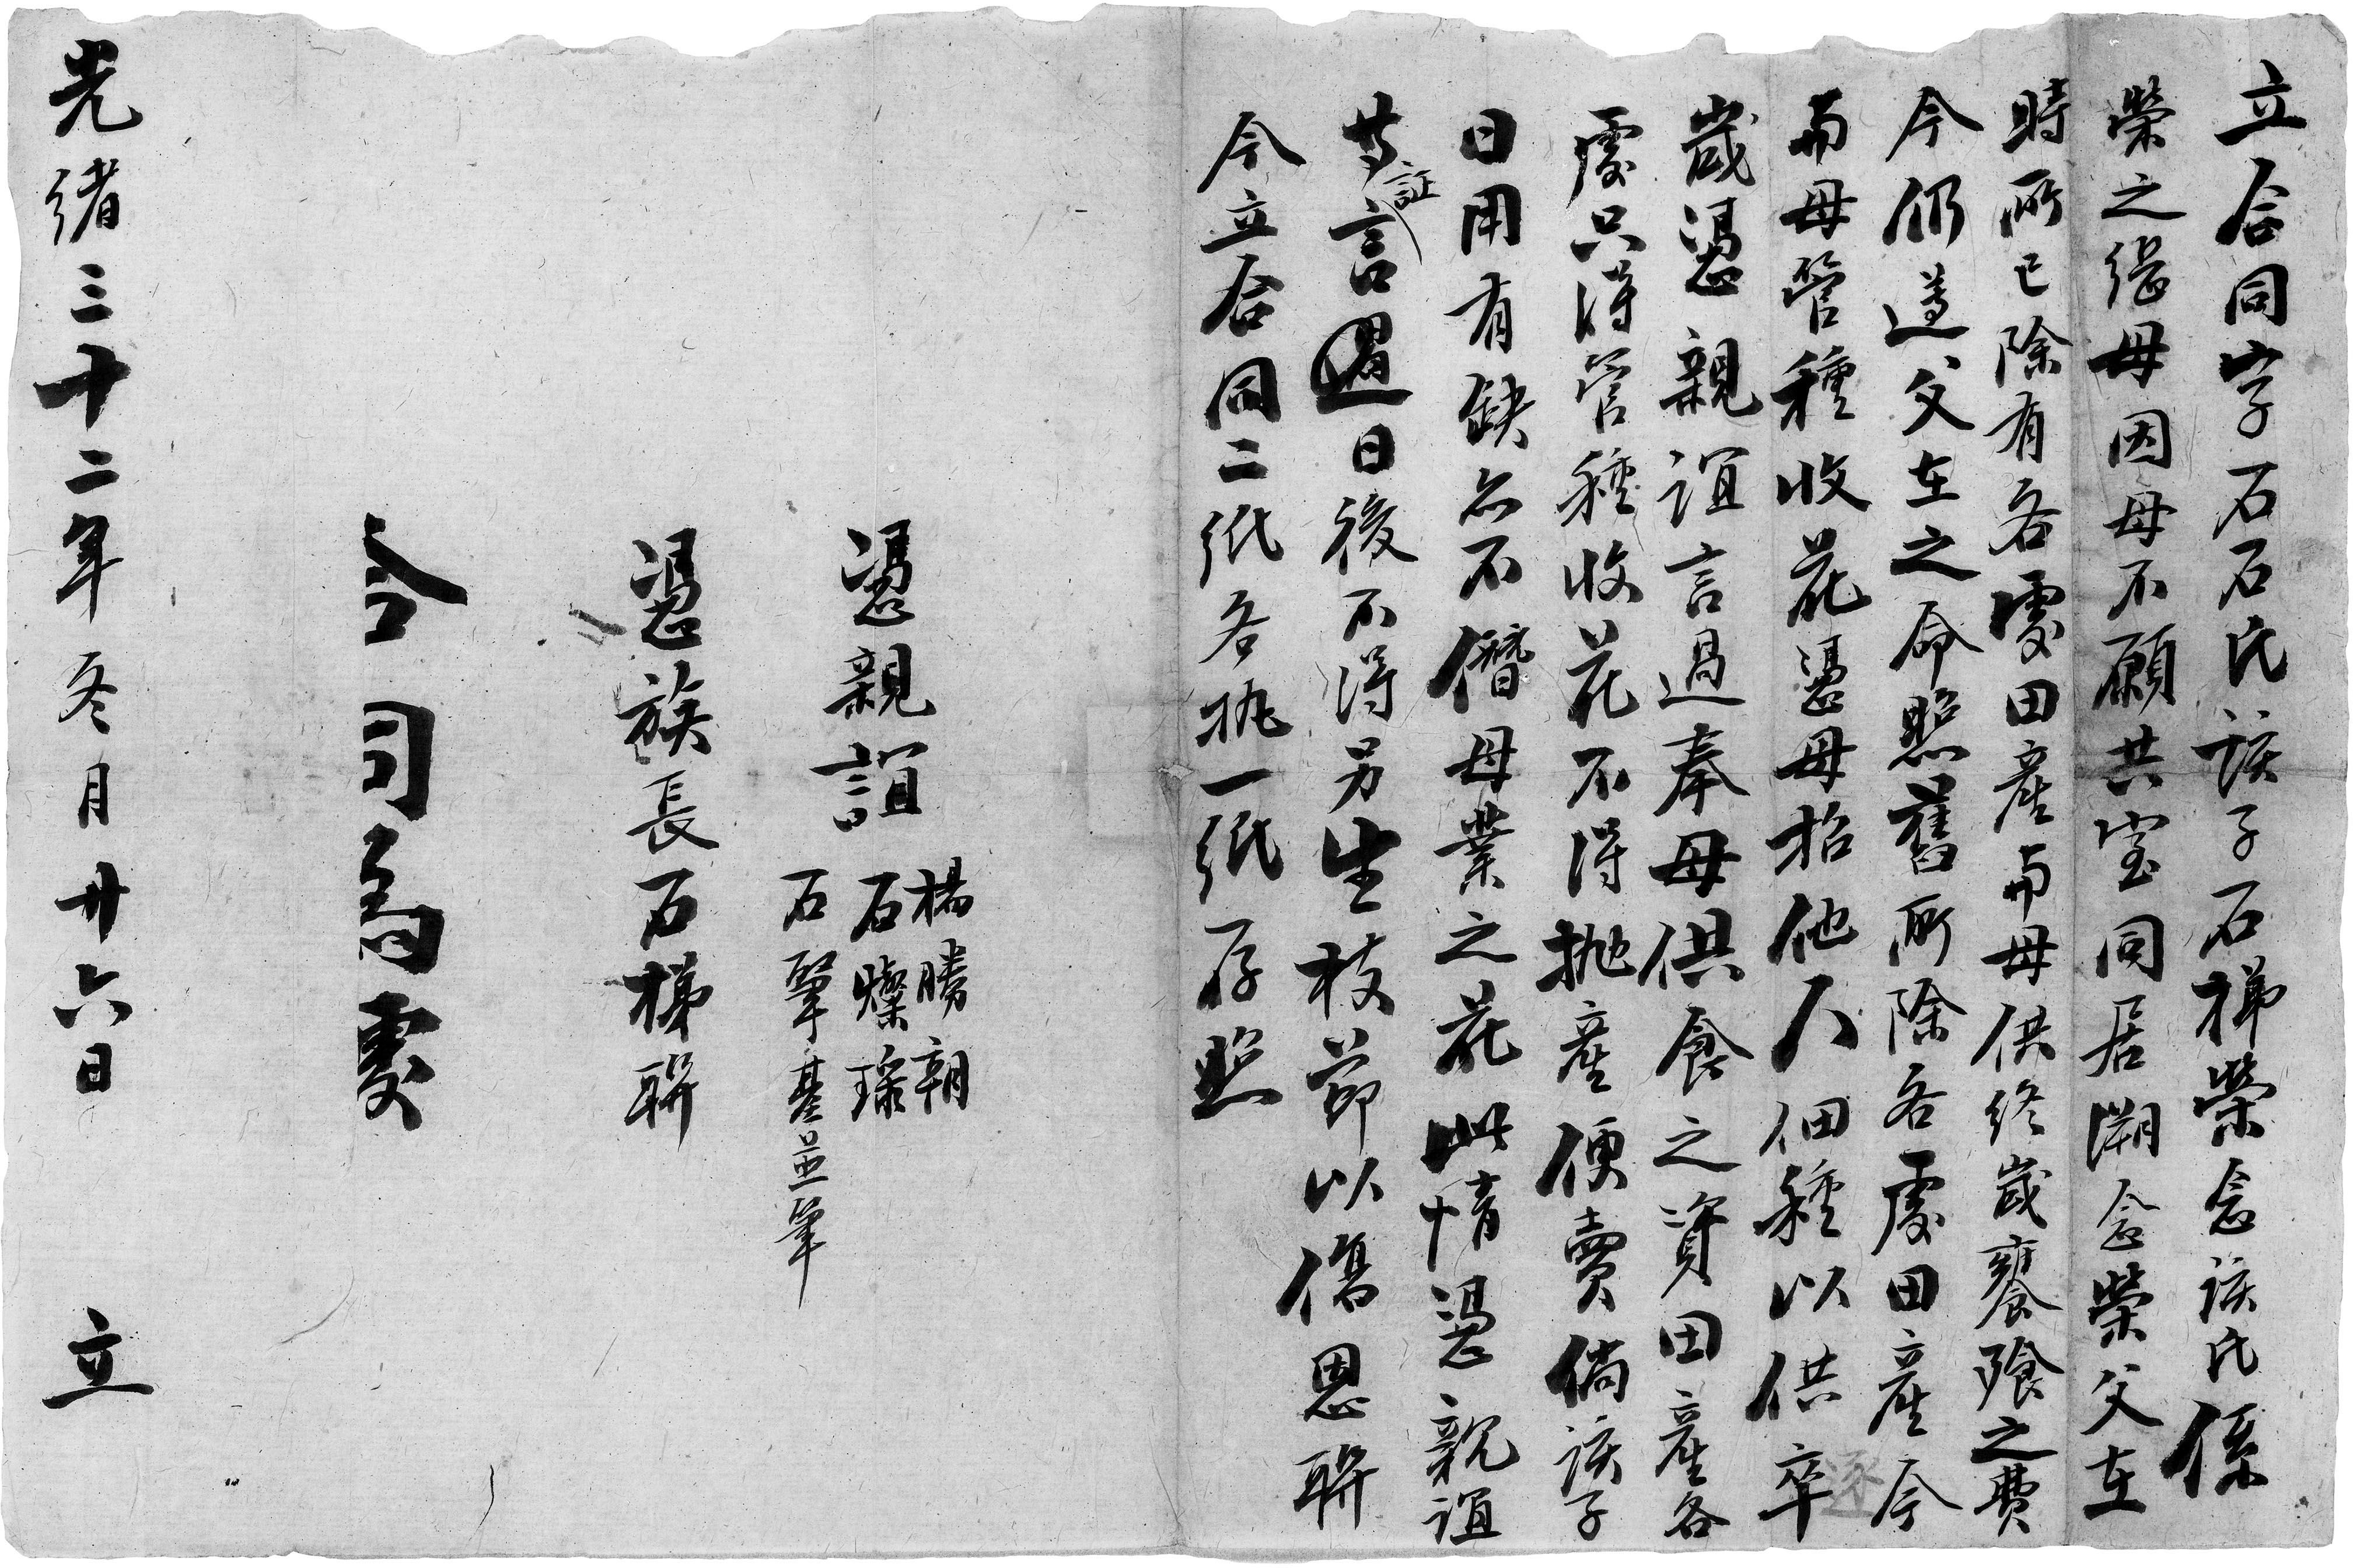 立合同字石石氏該子石梯榮念該氏係
榮之繼母因母不願共室同居溯念榮父在
時所已除有各處田產而母供終歲饔飧之費
今仍遵父在之命照舊所除各處田產今
而母管種收花憑母招他人佃種以供卒
歲憑親誼言過奉母供食之資田產各
處只得管種收花不得拋產便賣倘該子
日用有缺亦不僭母業之花此情憑親誼
等証言過日後不得另生枝節以傷恩聨
今立合同二紙各执一紙存照
憑親誼
楊勝朝
石燦瑺
石肇基並筆
憑族長石梯聨
合同為處
光緒三十二年冬月廿六日 立